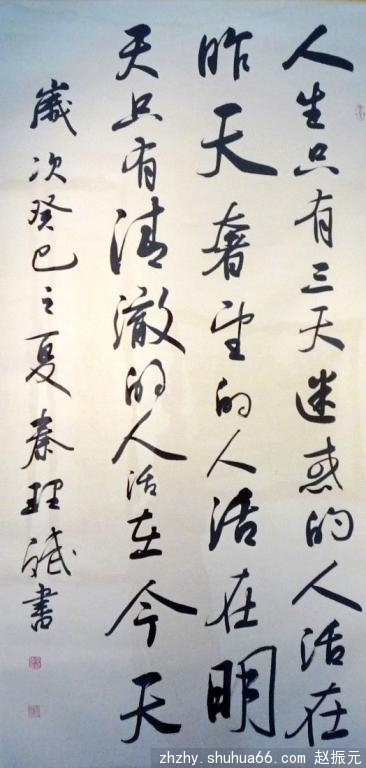 人生只有三天迷惑的人活在
昨天奢望的人活在明
天只有清澈的人活在今天
歲次癸巳之夏秦理斌書
zhzhy.shuhua66.com 赵振元